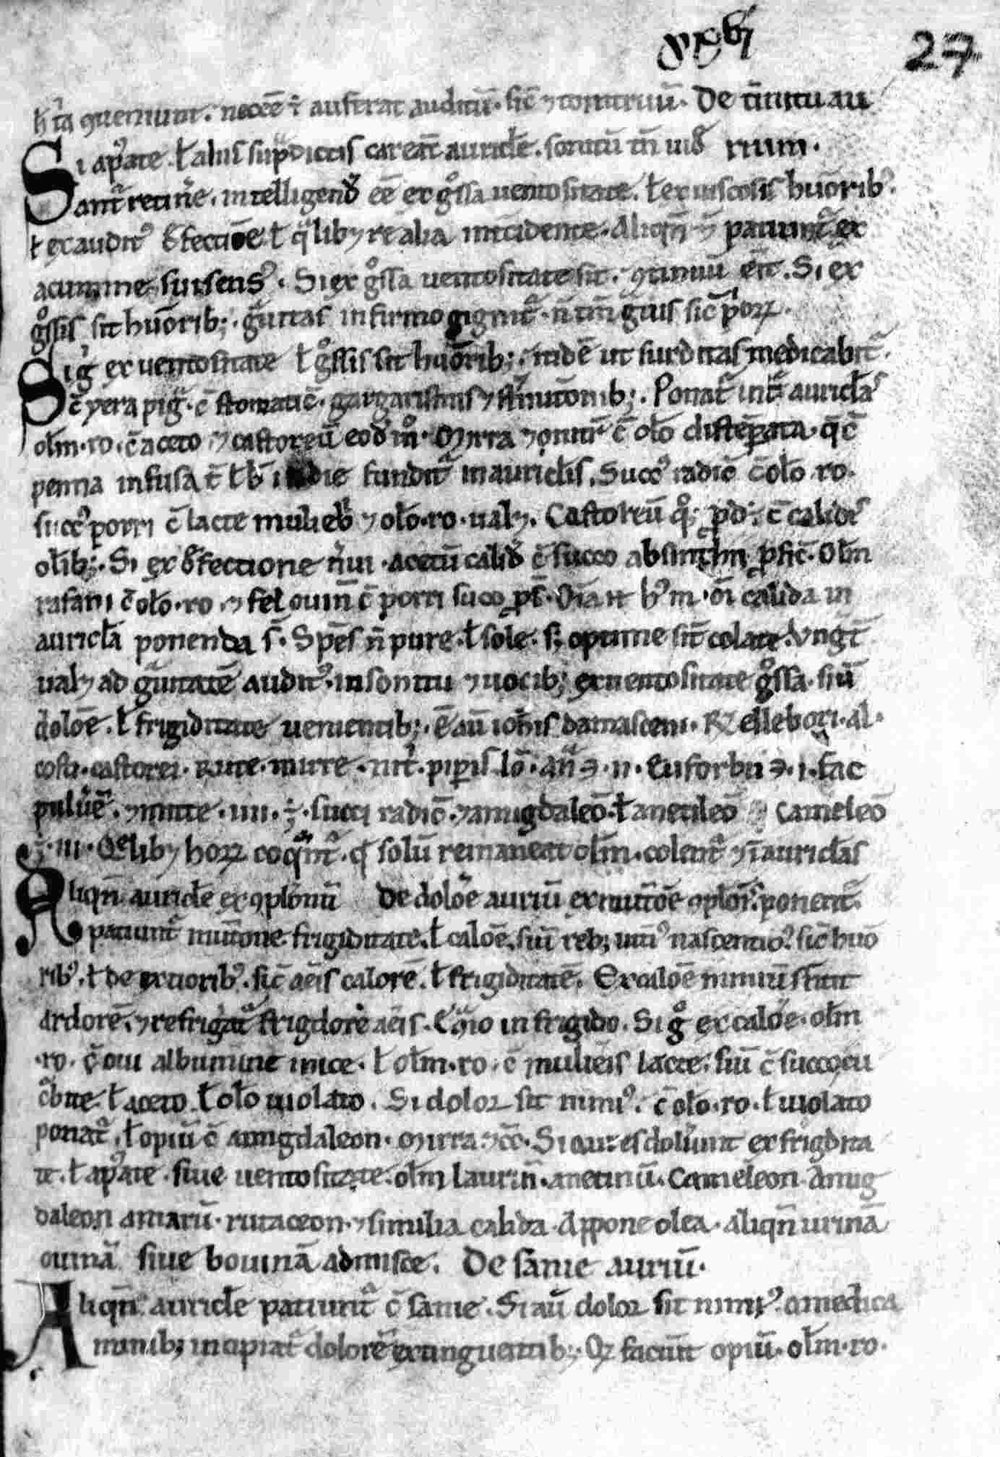 xxvi
27
h̅ ita ꝯueniunt. necc̅e ÷ auferat auditū. sic̅ ⁊ tonitruū. De tinnitu au
Si apꝰate. ł aliis sup̅dictis careāt auricl̅e. sonitū tn̅ uið rium.
antᷣ retin̅e. intelligend̅ ee̅ ex gͦssa uentositate. ł ex uiscosis huo̅ribꝰ.
ł ex auditꝰ defectio̅e ł qͣlibꝫ re alia incidente. Aliqn̅ patiuntᷣ ex
acumine sui sensꝰ. Si ex gͦssa uentositate sit. ꝯtinuū er̅it. Si ex
gͦssis sit huo̅ribꝫ. gͣuitas infirmo gignitᷣ. n̅ tm̅ gͣuis sic̅
Si gͦ ex uentositate ł gͦssis sit huo̅ribꝫ. itide̅ ut surditas medicabitᷣ.
c̅ yera pigͣ. c̅ stomatic̅. gargarismis ⁊ st̅nutōnibꝫ. Ponatᷣ intᷣ auricl̅as
ol̅m. ro. c̅ aceto ⁊ castoreū eod̅ mͦ. Mirra c̅ ol̅o disteꝑata. q̅ c̅
penna infusa funditᷣ in auricl̅is. Succꝰ radic̅ c̅ ol̅o. ro.
succꝰ porri c̅ lacte mulieb̅ ⁊ ol̅o. ro. ualꝫ. Castoreū qͦꝫ ꝓd̅. c̅ calidis
ol̅ibꝫ. Si ex defectione acetū calid̅ c̅ succo absinthii ꝓfic̅. Ol̅m
rafani c̅ ol̅o. ro ⁊ fel ouin̅ c̅ porri suco calida in
auricl̅a ponenda s̅. Spēs n̅ pure. ł sole. sꝫ optime sīt colate. Vngt̅
ualꝫ ad gͣuitatē auditꝰ. in sonitu ⁊ uocibꝫ ex uentositate gͦssa. siū
dolo̅e. ł frigiditate uenientibꝫ. Ioh̅is damasceni. ℞ ellebori. al.
costi. castorei. rute. mirre. nit̅. piꝑis lo̅. an̅ ʒ. ii. Euforbii ʒ. i. fac
puluē. ⁊ mitte. iiii. ℥. succi radic̅. ⁊ amigdaleō. ł anetileō cameleō
℥. iii. coqͣntᷣ. qͦ solū remaneat ol̅m. colentᷣ ⁊ ī auricl̅as
Aliqn̅ auricl̅e ex ꝯplōnū De dolo̅e auriū ex mutōe ꝯplōis. ponentᷣ
patiuntᷣ mutōne. frigiditate. ł calo̅e. siū rebꝫ intꝰ nascentibꝰ. sic̅ huo
ribꝰ. ł de exterioribꝰ. sic̅ aeris calorē. ł frigiditatē. Ex calo̅e nimiū sentiūt
ardorē. ⁊ refrigātᷣ frigdore aeris. in frigido. Si gͦ ex calo̅e. ol̅m
.ro. c̅ oui albumine inice. ł ol̅m. ro. c̅ mulieris lacte. siū c̅ succo cu
cͣbite. ł aceto ł ol̅o uiolato. Si dolor sit nimiꝰ. c̅ ol̅o. ro. ł uiolato
ponatᷣ. ł opiū c̅ amigdaleon. mirra Si aures doluerint ex frigdita
te. ł apꝰate. siue uentositate. ol̅m laurin̅. anetinū. cameleon. amig
daleon amarū. rutaceon. ⁊ similia calida. Appone olea. aliqn̅ urinā
ouinā siue bouinā admisce. De sanie auriū.
Aliqn̅ auricl̅e patiuntᷣ c̅ sanie. Si aū dolor sit nimiꝰ. a medica
minibꝫ incipiatᷣ dolorē extinguentibꝫ. faciūt opiū. ol̅m. ro.